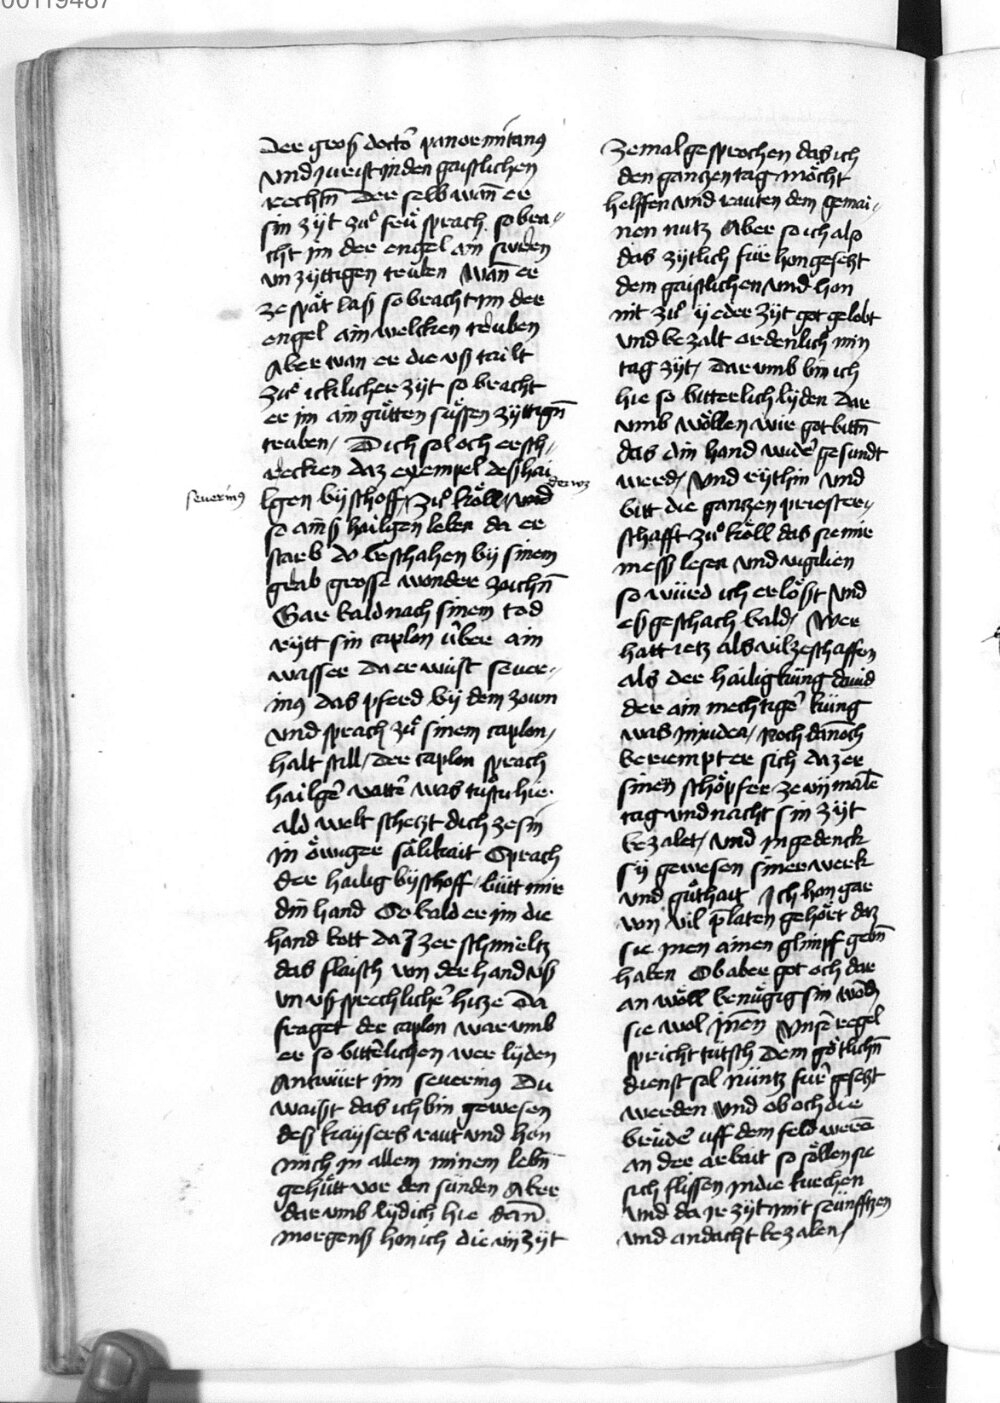 00119487
Der groß doctor̄ panormitanꝰ
vnd jurist in den gaistlichen
rechtn̄ Der selb wan̄ er
sin zÿt zuͦ frü sprach so bra⸗
cht im der engel ain suren
vn zÿttigen truben Wan̄ er
ze spaͤt laß so bracht im der
engel ain welcken truben
Aber wan er die vß tailt
Zuͦ icklicher zÿt so bracht
er im ain guͤtten suͤssen zÿttign̄
truben / Dich sol och ersch⸗
recken daz exempel deß hai
lgen bÿschoff / Zuͦ koͤll / vnd
der wz
seuerinꝰ
so ains hailgen leben da er
starb do beschahen bÿ sinem
grab grosse wonder zaichn̄
Gar bald nach sinem tod
rÿtt sin caplon über ain
wasser Da er wüst seuer⸗
inꝰ das pferd bÿ dem zoum
vnd sprach zuͦ sinem caplon /
halt still / Der caplon sprach
hailger̄ vatter̄ was tuͦstu hie
ald welt schetzt dich ze sin
in oͤwiger saͤlikait Sprach
der hailig bÿschoff / bütt mir
din hand So bald er im die
hand bott Da zerschmeltz
das flaisch von der hand vß
vn vß sprechlicher̄ hitze Da
fraget der caplon warumb
er so bitterlichen wer lÿden
Antwürt im seuerinꝰ Du
waist das ich bin gewesen
deß kaÿsers raut vnd hon
mich in allem minem lebn̄
gehuͤtt vor den sünden Aber
dar vmb lÿd ich hie dan̄
morgenß hon ich die vij zÿt
Zemal gesprochen das ich
den gantzen tag moͤcht
helffen vnd rauten dem gemai⸗
nen nutz Aber so ich also
das zÿtlich für hon gesetzt
dem gaistlichen vnd hon
nit zuͦ ÿeder zÿt got gelobt
vnd bezalt ordenlich min
tag zÿt / Dar vmb bin ich
hie so bitterlich lÿden Dar
vmb woͤllen wir got bittn̄
das din hand wider̄ gesundt
werd / Vnd rÿt hin vnd
bitt die gantzen priester⸗
schafft zuͦ koͤll das sie mir
messß lesen vnd vigilien
so würd ich erloͤßt vnd
eß geschach bald / Wer
hatt ietz als vil ze schaffen
als der hailig küng dauid
der ain mechtiger̄ küng
was in judea / Noch dan̄och
beriempt er sich daz er
sinen schoͤpfer ze vij male
tag vnd nacht sin zÿt
bezalet / vnd ingedenck
sÿ gewesen siner werk
vnd guͤthait Ich hon gar
von vil p̄laten gehoͤrt daz
sie inen ainen glimpf gebn̄
haben Ob aber got och dar
an woͤll benuͤgig sin word̄
sie wol inen Vnser̄ regel
spricht tütsch Dem goͤtlichn̄
dienst sol nüntz für gesetzt
werden vnd ob och die
bruͤder̄ uff dem feld weren̄
an der arbait so soͤllen sie
sich flissen in die kirchen
vnd da ir zÿt mit seünfftzen
vnd andacht bezalen /